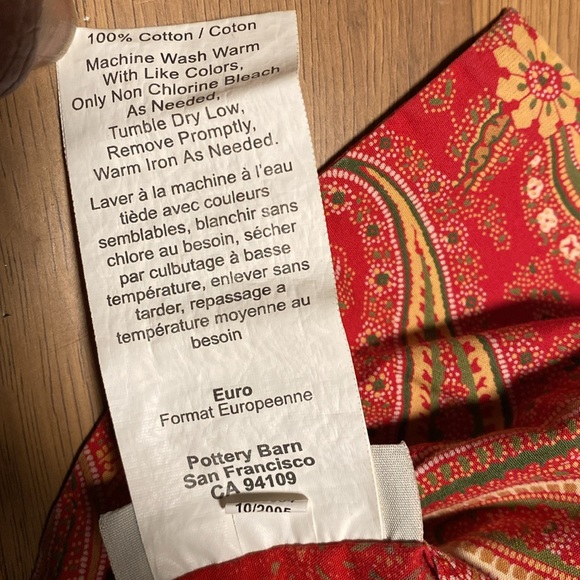 100% Cotton / Coton
Machine Wash Warm
With Like Colors,
Only Non Chlorine Bleach
As Needed,
Tumble Dry Low,
Remove Promptly,
Warm Iron As Needed.
Laver à la machine à l'eau
tiède avec couleurs
semblables, blanchir sans
chlore au besoin, sécher
par culbutage à basse
température, enlever sans
tarder, repassage a
température moyenne au
besoin
Euro
Format Europeenne
Pottery Barn
San Francisco
CA 94109
10/2005